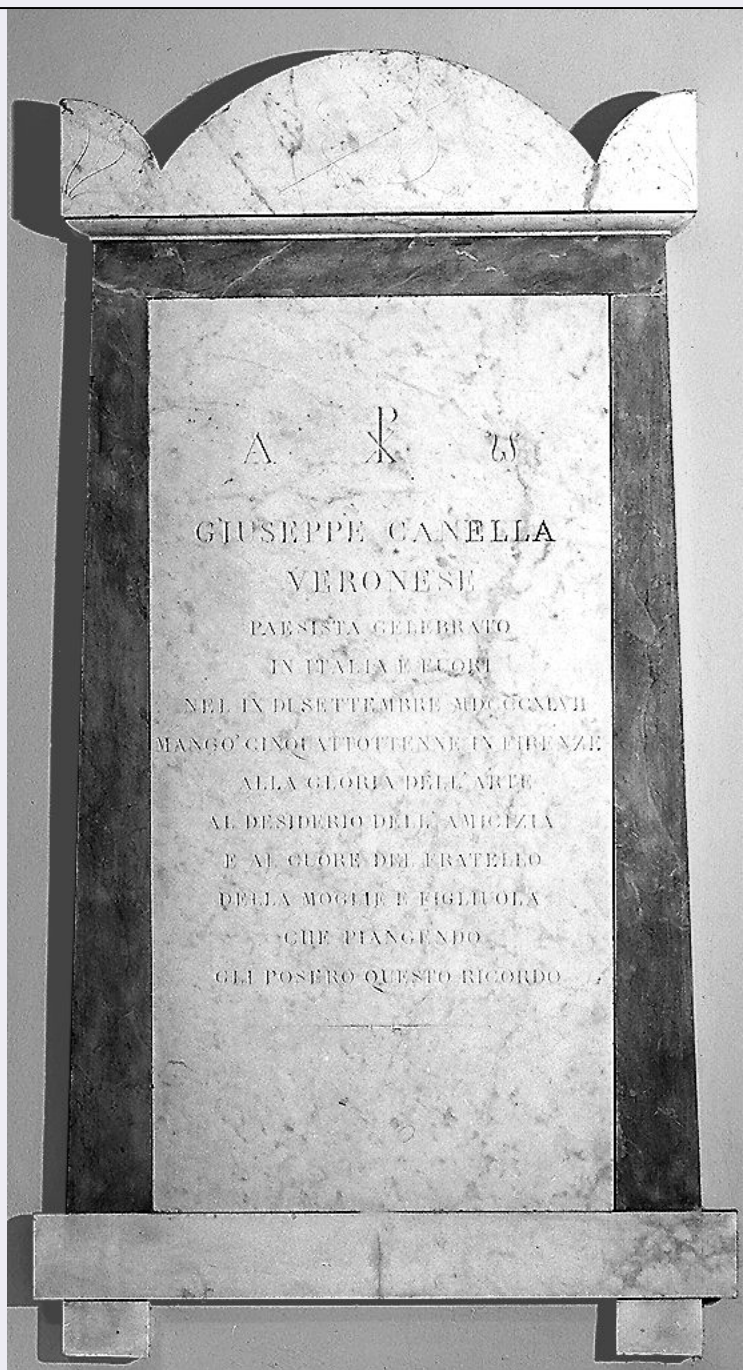 Α ☧ ω
GIUSEPPE CANELLA
VERONESE
PAESISTA CELEBRATO
IN ITALIA E FUORI
NEL IX DI SETTEMBRE MDCCCXLVII
MANCO' CINQUATTOTTENNE IN FIRENZE
ALLA GLORIA DELL' ARTE
AL DESIDERIO DELL' AMICIZIA
E AL CUORE DEL FRATELLO
DELLA MOGLIE E FIGLIUOLA
CHE PIANGENDO
GLI POSERO QUESTO RICORDO